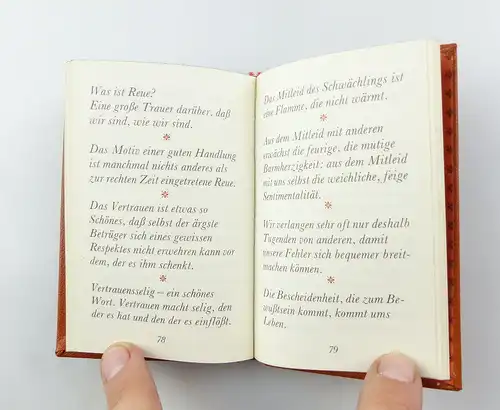 Was ist Reue?
Eine große Trauer darüber, daß
wir sind, wie wir sind.
Das Motiv einer guten Handlung
ist manchmal nichts anderes als
zur rechten Zeit eingetretene Reue.
Das Vertrauen ist etwas so
Schönes, daß selbst der ärgste
Betrüger sich eines gewissen
Respektes nicht erwehren kann vor
dem, der es ihm schenkt.
Vertrauensselig – ein schönes
Wort. Vertrauen macht selig, den
der es hat und den der es einflößt.
78
Das Mitleid des Schwächlings ist
eine Flamme, die nicht wärmt.
Aus dem Mitleid mit anderen
erwächst die feurige, die mutige
Barmherzigkeit; aus dem Mitleid
mit uns selbst die weichliche, feige
Sentimentalität.
Wir verlangen sehr oft nur deshalb
Tugenden von anderen, damit
unsere Fehler sich bequemer breit-
machen können.
Die Bescheidenheit, die zum Be-
wußtsein kommt, kommt ums
Leben.
79